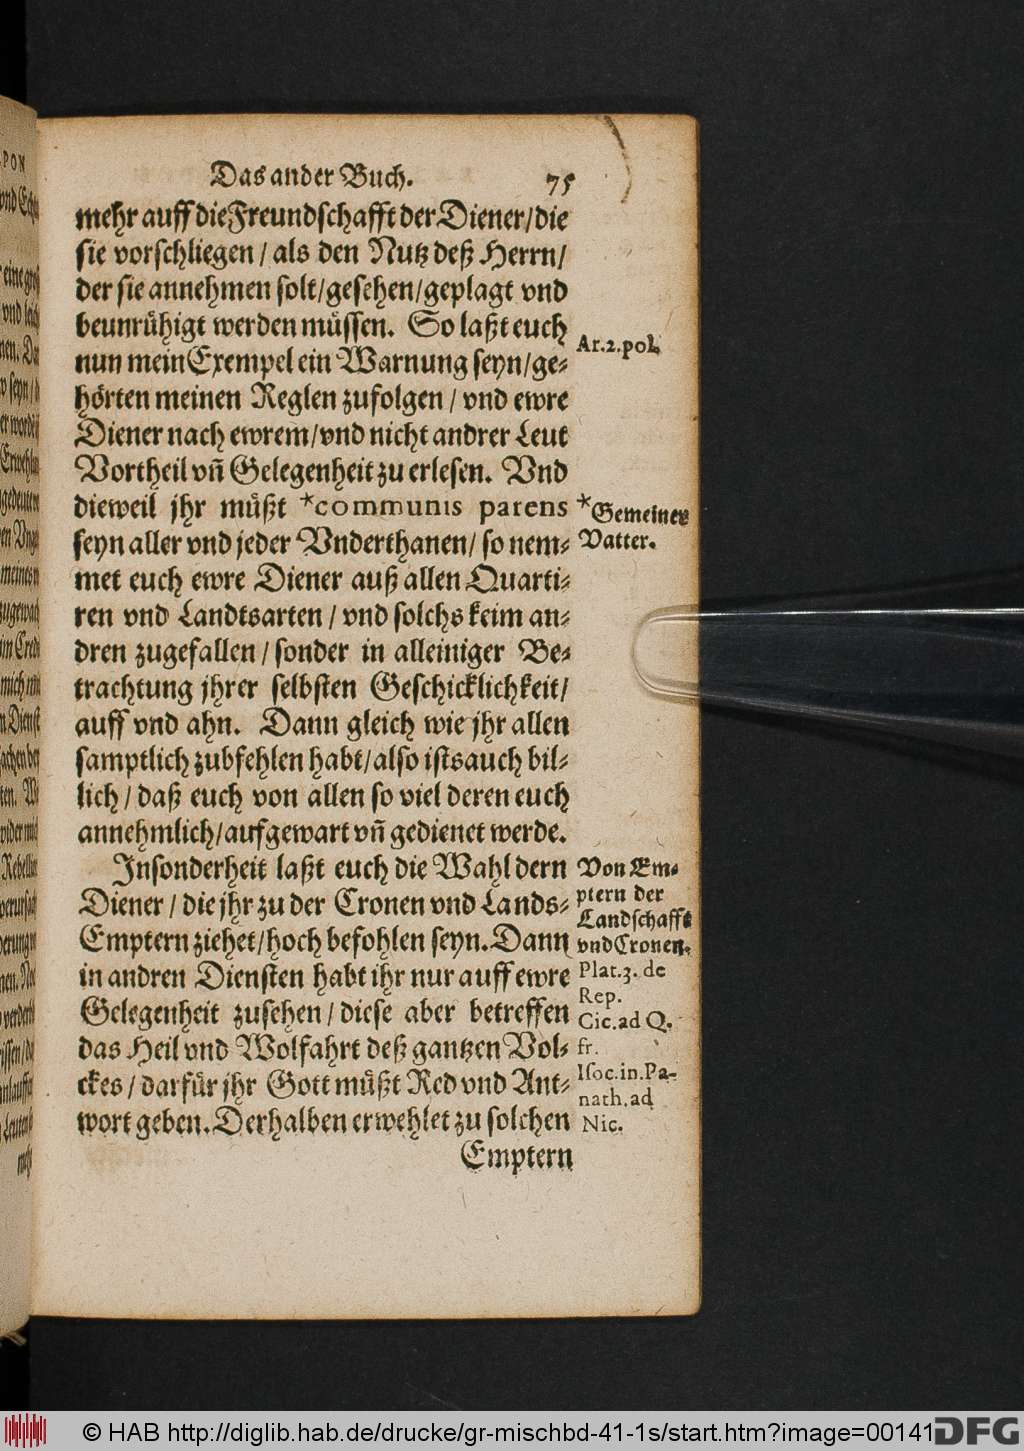 Das ander Buch. 75
mehr auff die Freundschafft der Diener/die
sie vorschliegen/ als den Nutz deß Herrn/
der sie annehmen solt/gesehen/geplagt vnd
beunrühigt werden müssen. So laßt euch
nun mein Exempel ein Warnung seyn/ge-
hörten meinen Reglen zufolgen/ vnd ewre
Diener nach ewrem/vnd nicht andrer Leut
Vortheil vñ Gelegenheit zu erlesen. Vnd
dieweil jhr müßt *communis parens
seyn aller vnd jeder Vnderthanen/ so nem-
met euch ewre Diener auß allen Quarti-
ren vnd Landtsarten/ vnd solchs keim an-
dren zugefallen/ sonder in alleiniger Be-
trachtung jhrer selbsten Geschicklichkeit/
auff vnd ahn. Dann gleich wie jhr allen
samptlich zubfehlen habt/also ists auch bil-
lich/ daß euch von allen so viel deren euch
annehmlich/aufgewart vñ gedienet werde.
Insonderheit laßt euch die Wahl dern
Diener/ die jhr zu der Cronen vnd Lands-
Emptern ziehet/hoch befohlen seyn. Dann
in andren Diensten habt ihr nur auff ewre
Gelegenheit zusehen/ diese aber betreffen
das Heil vnd Wolfahrt deß gantzen Vol-
ckes/ darfür jhr Gott müßt Red vnd Ant-
wort geben. Derhalben erwehlet zu solchen
Emptern
Ar.2.pol.
*Gemeiner
Vatter.
Von Em-
ptern der
Landschafft
vnd Cronen.
Plat.3. de
Rep.
Cic.ad Q.
fr.
Isoc.in.Pa-
nath.ad
Nic.
© HAB http://diglib.hab.de/drucke/gr-mischbd-41-1s/start.htm?image=00141
DFG